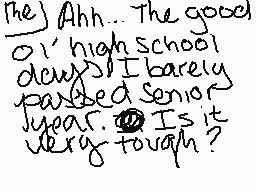 me) Ahh... The good
ol' high school
days! I barely
passed senior
year. Is it
very tough?